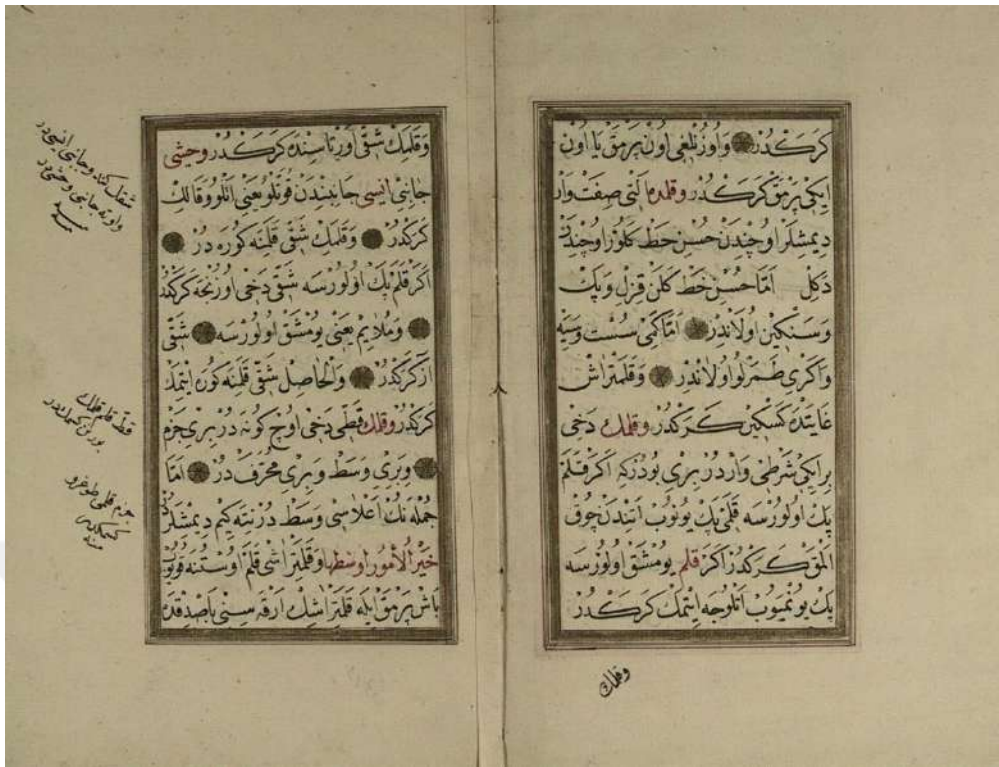 كركدر واوزنلغی اون پرمق یا اون
ایكی پرمق كركدر وقلمده التی صفت وار
دیمشلر اوچندن حسن خط كلور اوچندن
دكل اما حسن خط كلن قزل و پك
وسنكین اولاندر اما كمی سست و سیه
واكری طمرلو اولاندر وقلمتراش
غایتده كسكین كركدر وقلمك دخی
بر ایكی شرطی واردر بری بودركه اكر قلم
پك اولورسه قلمی پك یونوب اتندن چوق
المق كركدر اكر قلم یومشق اولورسه
پك یونمیوب اتلوجه ایتمك كركدر
وقلمك
وقلمك شقی اورتاسنده كركدر وحشی
جانبی انسی جانبندن قوتلو یعنی اتلو وقالك
كركدر وقلمك شقی قلمنه كوره در
اكر قلم پك اولورسه شقی دخی اوزنجه كركدر
وملایم یعنی یومشق اولورسه شقی
از كركدر والحاصل شقی قلمنه كوره ایتمك
كركدر وقلمك قطی دخی اوچ كونه در بری جزم
وبری وسط وبری محرف در اما
جمله نك اعلاسی وسط در نته كیم دیمشلردر
خیر الامور اوسطها وقلمتراشی قلم اوستنه قویوب
باش پرمق ایله قلمتراشك ارقه سنی باصدقده
وجانبی انسی در
واوته جانبی وحشی در
قط قلم قلمك
بورنن كسمكدر
جزم قلمی طوغرو
كسمكدر